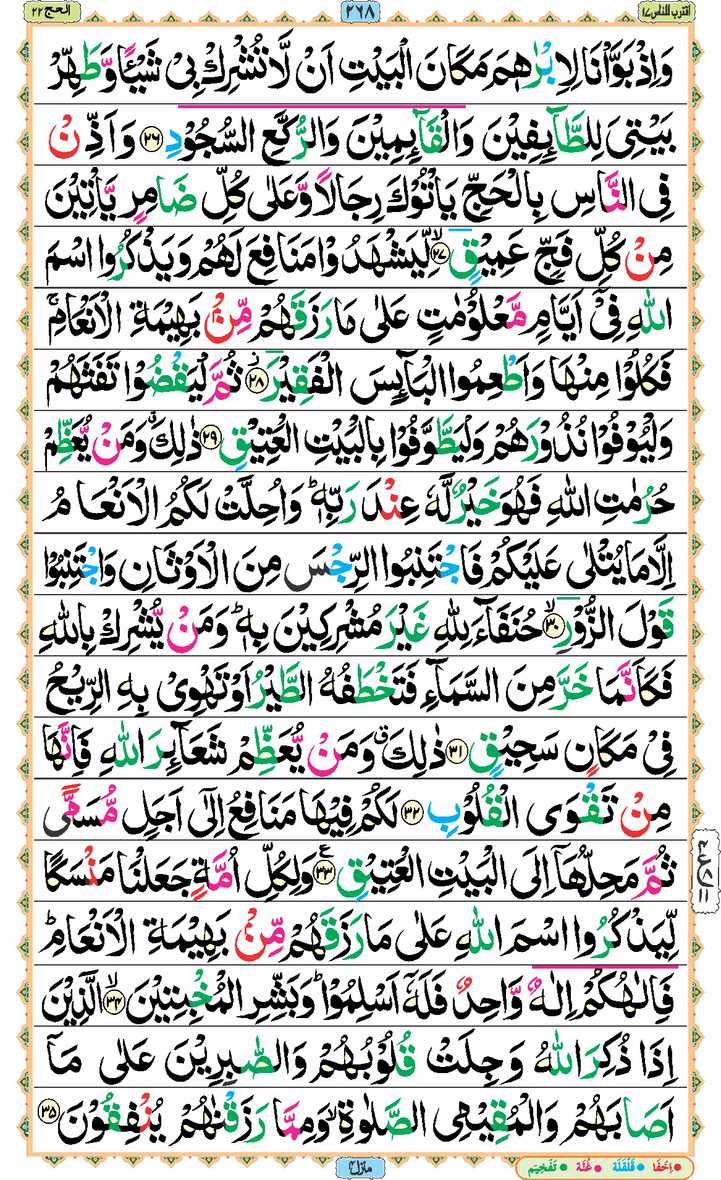 اقترب للناس ١٧
٢٦٨
الحج ٢٢
وَاِذْ بَوَّاْنَا لِاِبْرٰهِيْمَ مَكَانَ الْبَيْتِ اَنْ لَّا تُشْرِكْ بِيْ شَيْـًٔا وَّطَهِّرْ
بَيْتِيَ لِلطَّآئِفِيْنَ وَالْقَآئِمِيْنَ وَالرُّكَّعِ السُّجُوْدِ ﴿٢٦﴾ وَاَذِّنْ
فِى النَّاسِ بِالْحَجِّ يَاْتُوْكَ رِجَالًا وَّعَلٰى كُلِّ ضَامِرٍ يَّاْتِيْنَ
مِنْ كُلِّ فَجٍّ عَمِيْقٍ ﴿٢٧﴾ لِّيَشْهَدُوْا مَنَافِعَ لَهُمْ وَيَذْكُرُوا اسْمَ
اللّٰهِ فِيْٓ اَيَّامٍ مَّعْلُوْمٰتٍ عَلٰى مَا رَزَقَهُمْ مِّنْۢ بَهِيْمَةِ الْاَنْعَامِ ۚ
فَكُلُوْا مِنْهَا وَاَطْعِمُوا الْبَآئِسَ الْفَقِيْرَ ﴿٢٨﴾ ثُمَّ لْيَقْضُوْا تَفَثَهُمْ
وَلْيُوْفُوْا نُذُوْرَهُمْ وَلْيَطَّوَّفُوْا بِالْبَيْتِ الْعَتِيْقِ ﴿٢٩﴾ ذٰلِكَ ۗ وَمَنْ يُّعَظِّمْ
حُرُمٰتِ اللّٰهِ فَهُوَ خَيْرٌ لَّهٗ عِنْدَ رَبِّهٖ ؕ وَاُحِلَّتْ لَكُمُ الْاَنْعَامُ
اِلَّا مَا يُتْلٰى عَلَيْكُمْ فَاجْتَنِبُوا الرِّجْسَ مِنَ الْاَوْثَانِ وَاجْتَنِبُوْا
قَوْلَ الزُّوْرِ ﴿٣٠﴾ حُنَفَآءَ لِلّٰهِ غَيْرَ مُشْرِكِيْنَ بِهٖ ؕ وَمَنْ يُّشْرِكْ بِاللّٰهِ
فَكَاَنَّمَا خَرَّ مِنَ السَّمَآءِ فَتَخْطَفُهُ الطَّيْرُ اَوْ تَهْوِيْ بِهِ الرِّيْحُ
فِيْ مَكَانٍ سَحِيْقٍ ﴿٣١﴾ ذٰلِكَ ۗ وَمَنْ يُّعَظِّمْ شَعَآئِرَ اللّٰهِ فَاِنَّهَا
مِنْ تَقْوَى الْقُلُوْبِ ﴿٣٢﴾ لَكُمْ فِيْهَا مَنَافِعُ اِلٰٓى اَجَلٍ مُّسَمًّى
ثُمَّ مَحِلُّهَآ اِلَى الْبَيْتِ الْعَتِيْقِ ﴿٣٣﴾ ع وَلِكُلِّ اُمَّةٍ جَعَلْنَا مَنْسَكًا
لِّيَذْكُرُوا اسْمَ اللّٰهِ عَلٰى مَا رَزَقَهُمْ مِّنْۢ بَهِيْمَةِ الْاَنْعَامِ ؕ
فَاِلٰهُكُمْ اِلٰهٌ وَّاحِدٌ فَلَهٗٓ اَسْلِمُوْا ؕ وَبَشِّرِ الْمُخْبِتِيْنَ ﴿٣٤﴾ الَّذِيْنَ
اِذَا ذُكِرَ اللّٰهُ وَجِلَتْ قُلُوْبُهُمْ وَالصّٰبِرِيْنَ عَلٰى مَآ
اَصَابَهُمْ وَالْمُقِيْمِى الصَّلٰوةِ ۙ وَمِمَّا رَزَقْنٰهُمْ يُنْفِقُوْنَ ﴿٣٥﴾
منزل ٤
اِخفَا قَلْقَلَه غُنَّه تَفْخِيْم